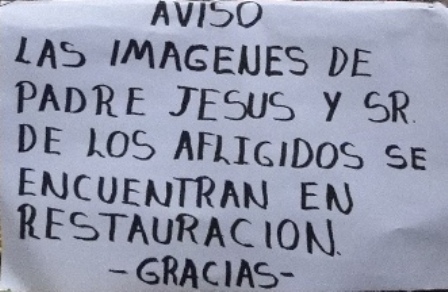 AVISO
LAS IMAGENES DE
PADRE JESUS Y SR.
DE LOS AFLIGIDOS SE
ENCUENTRAN EN
RESTAURACION.
-GRACIAS-